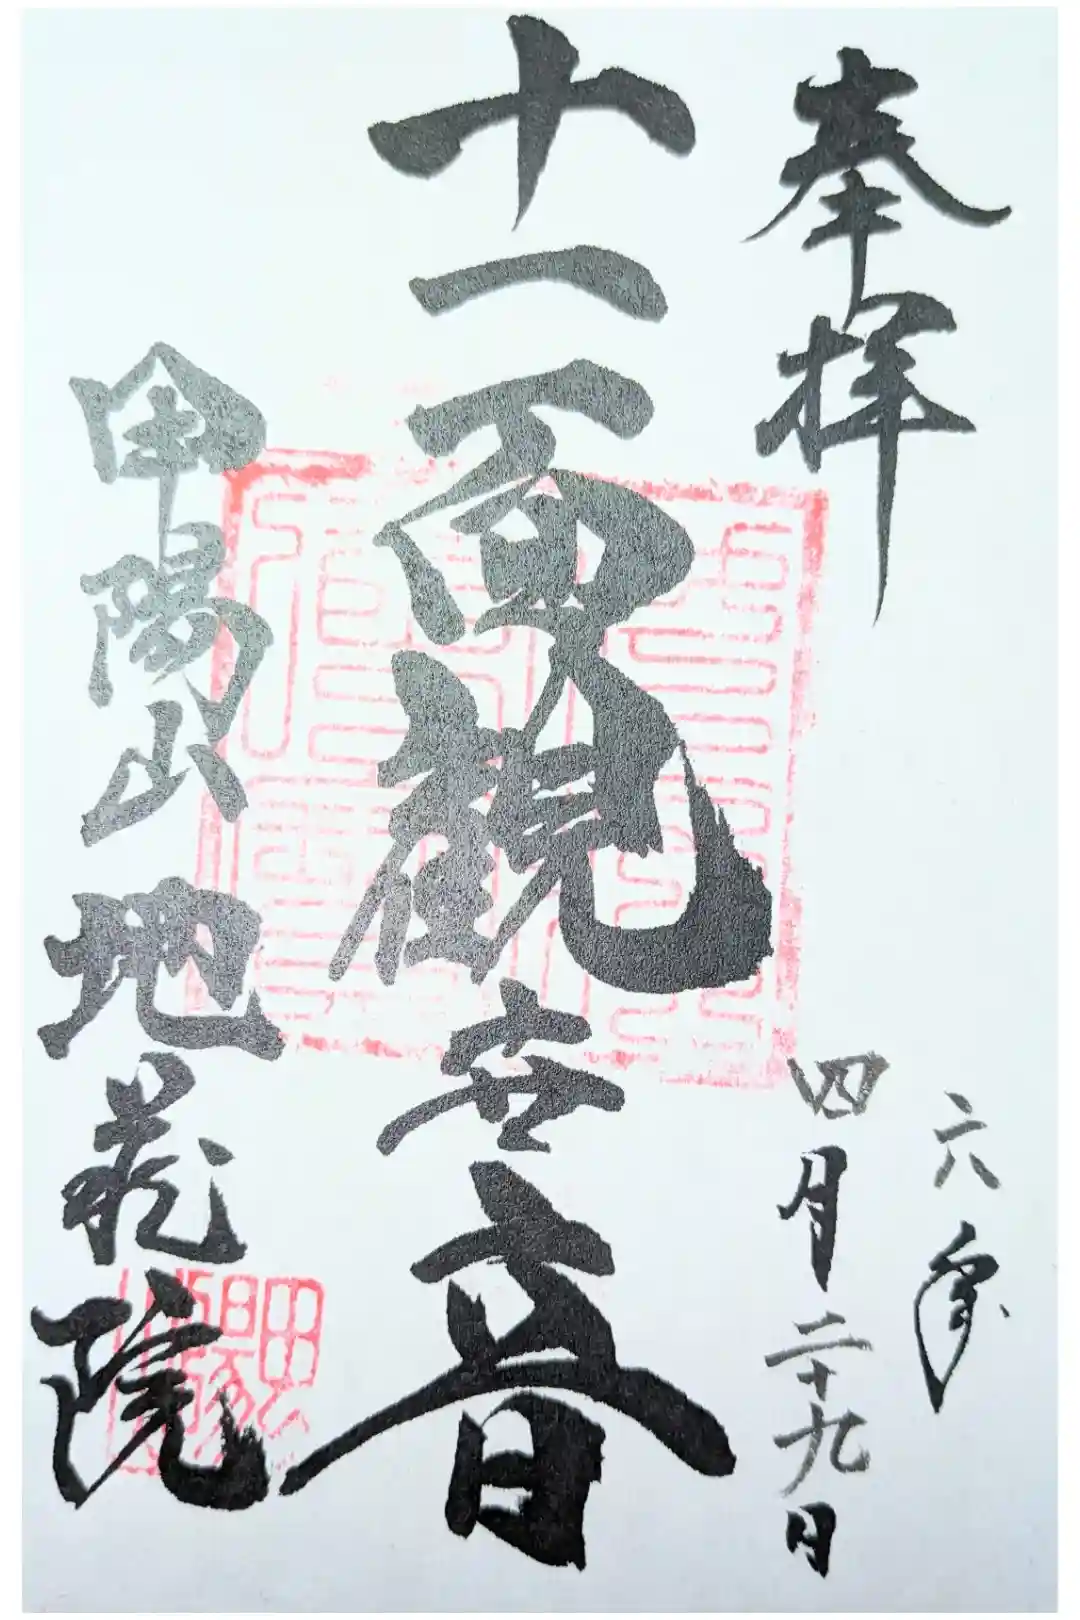 奉拝
六年
四月二十九日
十一面観世音
甲陽山
地蔵院